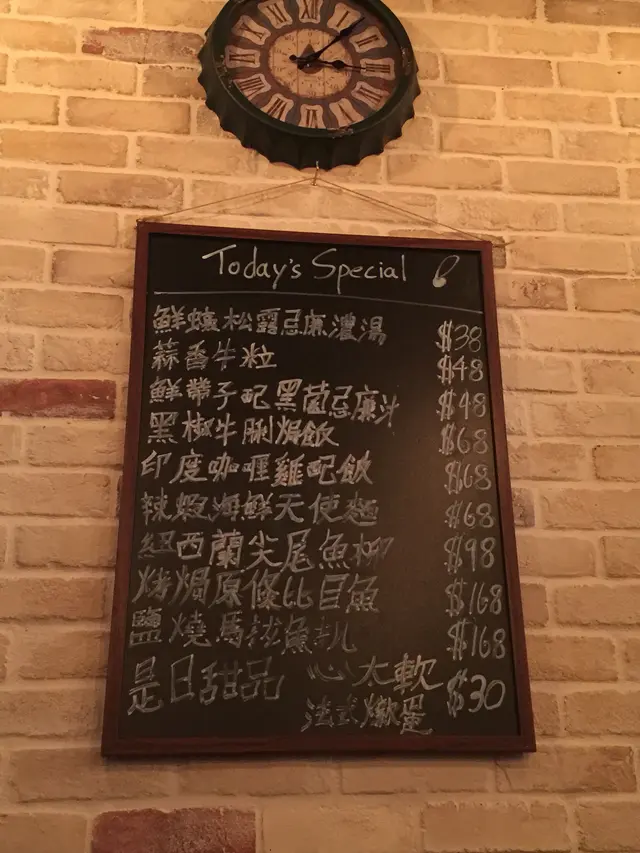 Today's Special
鮮蠔松露忌廉濃湯 $38
蒜香牛粒 $48
鮮帶子配黑菌忌廉汁 $48
黑椒牛脷焗飯 $68
印度咖喱雞配飯 $68
辣蝦海鮮天使麵 $68
紐西蘭尖尾魚柳 $98
烤焗原條比目魚 $168
鹽燒馬 魚扒 $168
是日甜品 心太軟 $30
法式燉蛋